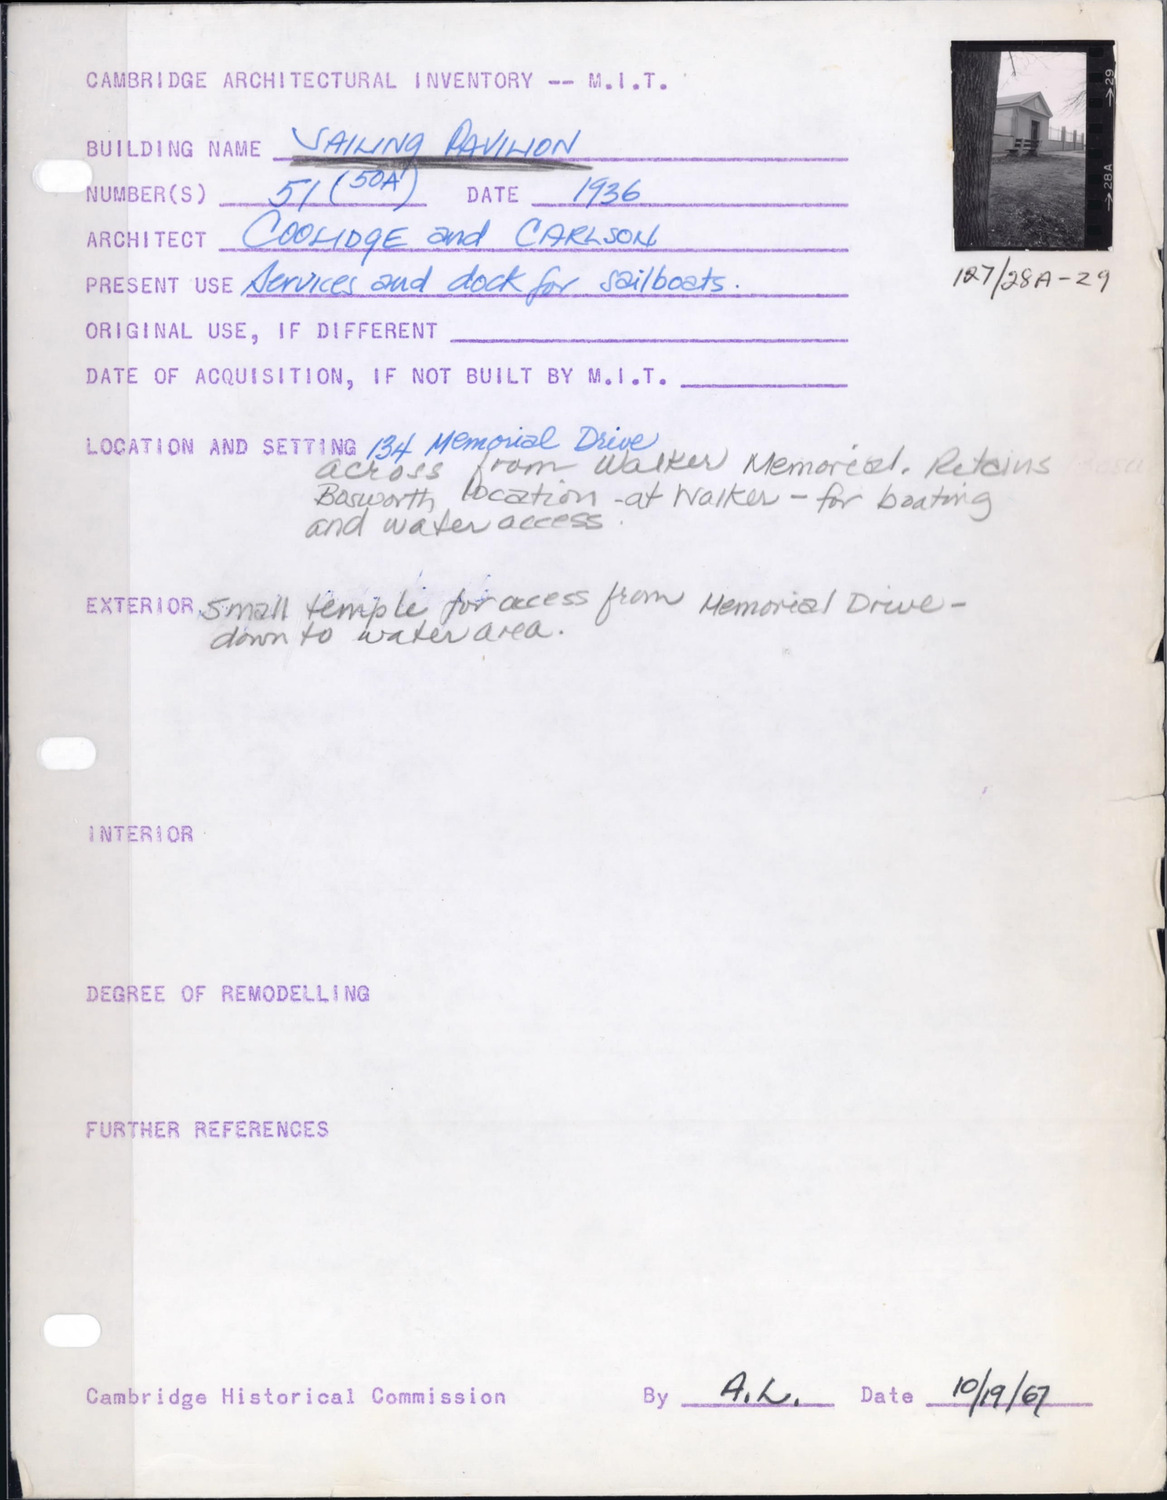 CAMBRIDGE ARCHITECTURAL INVENTORY -- M.I.T.
→29
→28A
127/28A-29
BUILDING NAME SAILING PAVILION
NUMBER(S) 51 (50A) DATE 1936
ARCHITECT COOLIDGE and CARLSON
PRESENT USE Services and dock for sailboats.
ORIGINAL USE, IF DIFFERENT
DATE OF ACQUISITION, IF NOT BUILT BY M.I.T.
LOCATION AND SETTING 134 Memorial Drive
across from Walker Memorial. Retains
Bosworth location -at Walker - for boating
and water access.
EXTERIOR Small temple for acess from Memorial Drive -
down to water area.
INTERIOR
DEGREE OF REMODELLING
FURTHER REFERENCES
Cambridge Historical Commission By A.L. Date 10/19/67